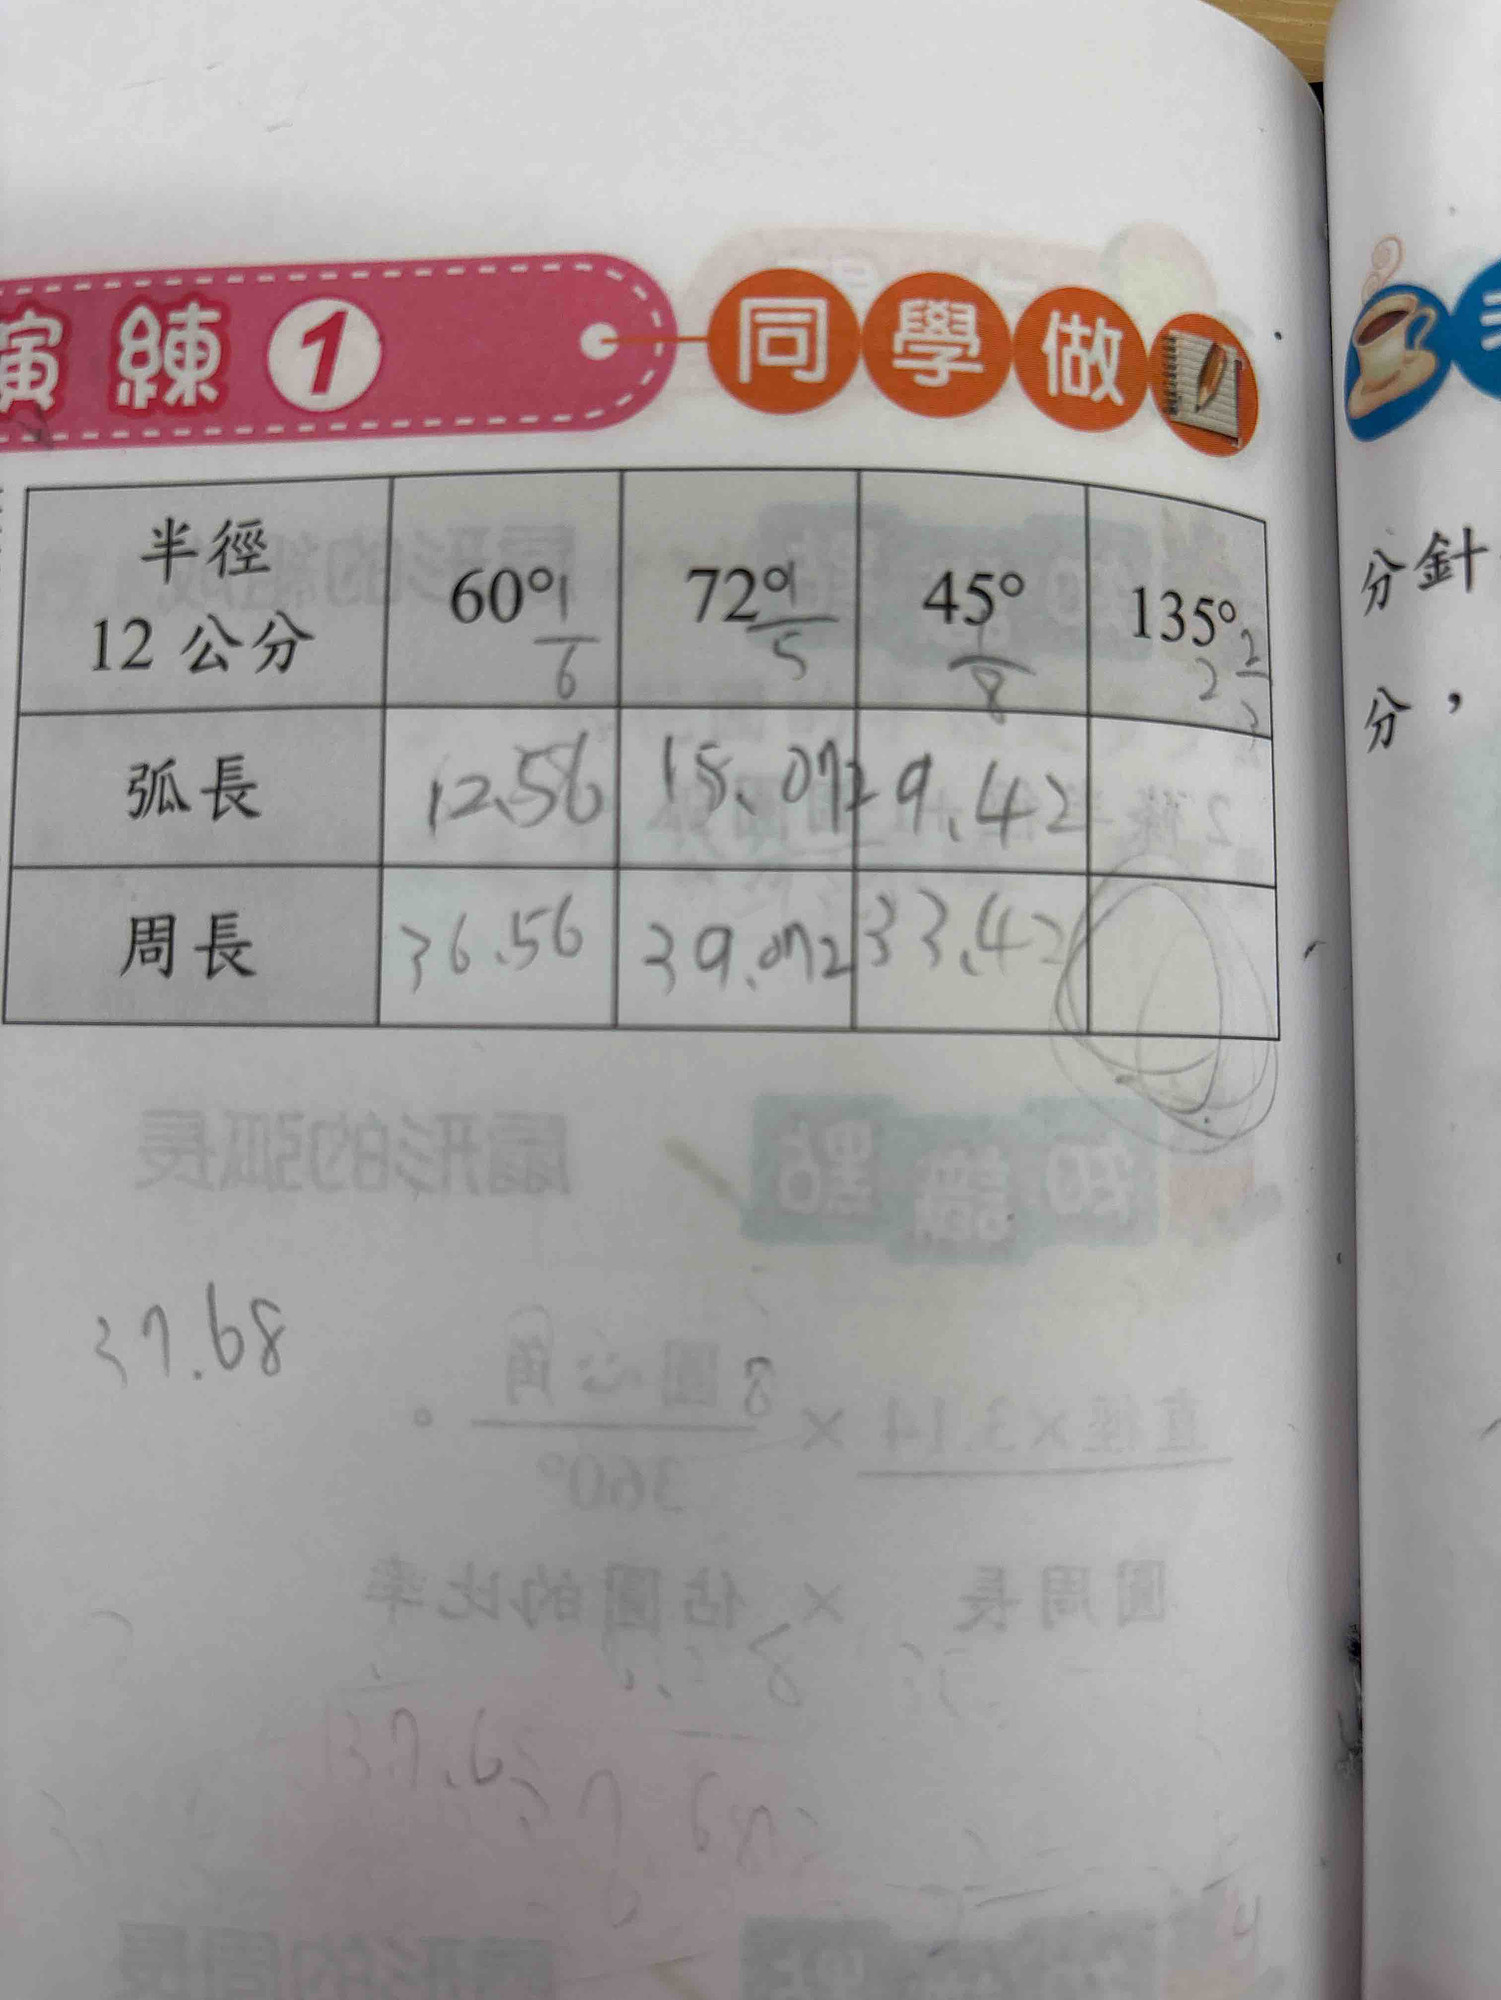 演練 1 同學做
半徑 12 公分 60° 1/6 72° 1/5 45° 1/8 135° 2 2/3
弧長 12.56 15.072 9.42
周長 36.56 39.072 33.42
37.68
分針
分，